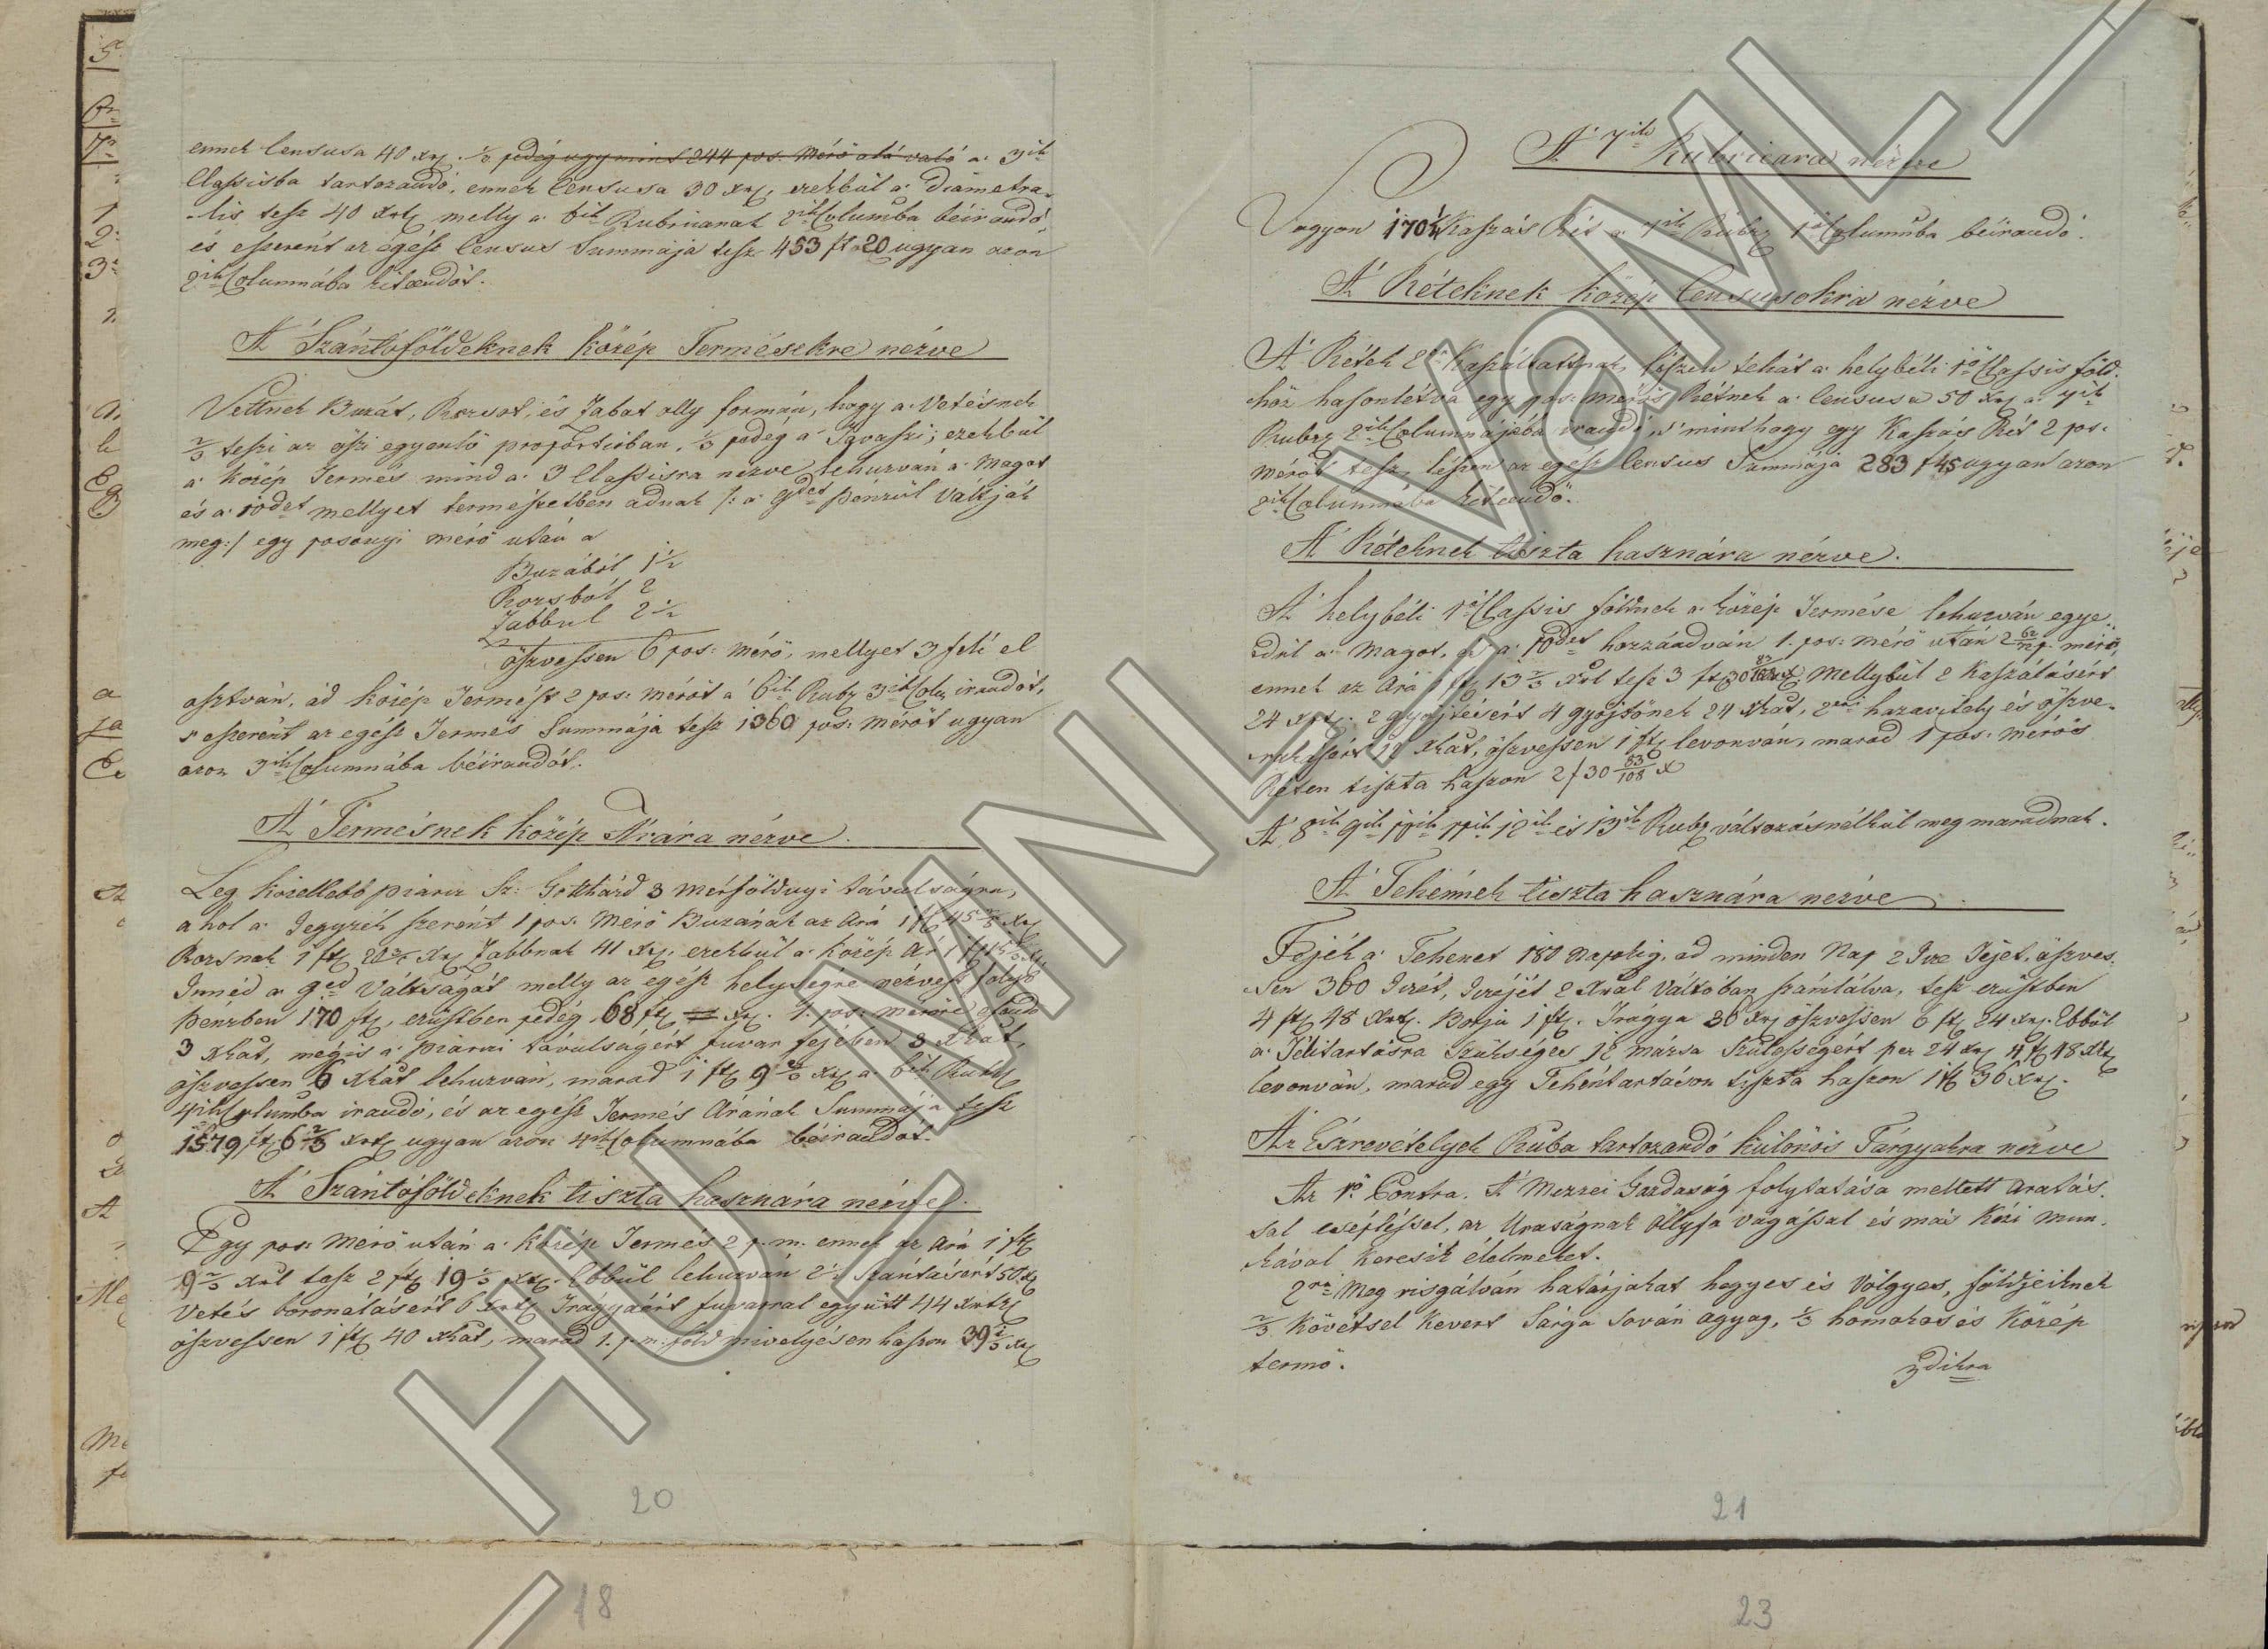 ennek Censusa 40 xrj. 1/3 pedég ugymint 244 pos. Mérő alá való a 3ik
Classisba tartozandó, ennek Censusa 30 xrj, ezekbül a Diametra-
lis tesz 40 xrtz melly a 6ik Rubricanak 2ik Columba béirandó
és eszerént az egész Census Summája tesz 453 ft 20 ugyan azon
2ik Columnába kiteendőt.
A' Szántóföldeknek közép Termésekre nézve
Vettnek Buzát, Rozsot, és Zabat olly formán, hogy a Vetésnek
2/3 teszi az őszi egyenlő proportioban, 1/3 pedég a Tavaszi; ezekbül
a közép Termés mind a 3 Classisra nézve lehuzván a Magot
és a 10det mellyet termeszetben adnak /: a 9det pénzül váltják
meg :/ egy posonyi mérő után a
Buzából 1 1/2
Rozsból 2
Zabbul 2 1/2
öszvessen 6 pos: mérő, mellyet 3 felé el
osztván, ád közép Termést 2 pos: mérőt a' 6ik Rubr 3ik Col irandót,
s' eszerént az egész Termés Summája tesz 1360 pos: mérőt ugyan
azon 3ik Columnába béirandót.
A' Termésnek közép Árára nézve.
Leg közellebb piarcz Sz: Gotthárd 3 mérföldnyi távulságra,
ahol a Jegyzék szerént 1 pos. Mérő Buzának az Ára 1 ft 45 2/3 xrj
Rozsnak 1 ft xrj Zabbnak 41 xrj. ezekbül a közép Ár 1 ft 15 2/3 xr
Innéd a 9ed Váltságát melly az egész helységre nézvest folyó
pénzben 170 ft, ezüstben pedég 68 ft xrj. 1. pos. mérőre esendő
3 xkat, mégis a piarczi távulságért fuvar fejében 3 xkat,
öszvessen 6 xkat lehuzván, marad 1 ft 9 2/3 xrj a 6ik Rubr
4ik Columba irandó, és az egész Termés Árának Summája tesz
1579 ft 6 2/3 xrtz ugyan azon 4ik Columnába béirandót.
A' Szántóföldeknek tiszta hasznára nézve.
Egy pos: Mérő után a közép Termés 2 p. m. ennek az Ára 1 ft
9 2/3 xrül tesz 2 ft 19 1/3 xrtz. Ebbül lehuzván 2 Szántásért 50 x
Vetés boronálásért 6 xrtz Trágyáért fuvarral egyűtt 44 xrtz
öszvessen 1 ft 40 xkat, marad 1. p. m. föld mivelyésen haszon 39 1/3 xr
20
18
A' 7ik Rubricara nézve
Vagyon 170 1/4 Kaszás Rét a 7ik Rubr 1ő Columnba béirandó.
A' Réteknek közép Censusokra nézve
A' Rétek 2er Kaszáltattnak, tészik tehát a helybéli 1ő Classis föld-
höz hasonlétva egy pos: mérős Rétnek a Censusa 50 xrj a 7ik
Rubr 2ik Columnájába irandó, s' minthogy egy Kaszás Rét 2 pos.
mérőt tesz, lészen az egész Census Summája 283 f 45 ugyan azon
2ik Columnába kiteendő.
A' Réteknek tiszta hasznára nézve.
A' helybéli 1ő Classis földnek a közép Termése lehuzván egye-
dül a Magot, és a 10det hozzáadván 1. pos: mérő után 2 p. mérő,
ennek az Ára 1 ft 13 2/3 xrül tesz 3 ft 30 83/108 x Mellybül 2 Kaszálásért
24 xrtz. 2 gyöjtésért 4 gyöjtőnek 24 xkat, 2eri hazavitely és öszve-
rakásért 12 xkat, öszvessen 1 ft levonván, marad 1 pos. mérős
Réten tiszta haszon 2 f 30 83/108 x
A' 8ik 9ik 10ik 11ik 12ik és 13ik Rubr változás nélkül meg maradnak.
A' Tehénnek tiszta hasznára nézve
Fejék a Tehenet 180 Napokig, ad minden Nap 2 Icze Tejet, öszves-
sen 360 Iczét, Iczéjét 2 xrül Váltóban számlálva, tesz ezüstben
4 ft 48 xrtz. Borja 1 ft. Tragya 36 xrj öszvessen 6 ft 24 xrj. Ebbül
a Télitartásra Szükséges 12 mázsa Szálasségért per 24 xrj 4 ft 48 xrtz
levonván, marad egy Tehéntartáson tiszta haszon 1 ft 36 xrj.
Az Eszrevételyek Rubba tartozandó különös Tárgyakra nézve
Az 1ő Contra. A' Mezzei Gazdaság folytatása mellett Aratás-
sal csépléssel, az Uraságnak Öllyfa vágással és más Kézi mun-
kával keresik élelmeket.
2ra Meg visgálván határjokat hegyes és Völgyes, földjeiknek
2/3 Kövétsel kevert Sárga Sován agyag, 1/3 homokos és Közép
termő.
3dikra
21
23